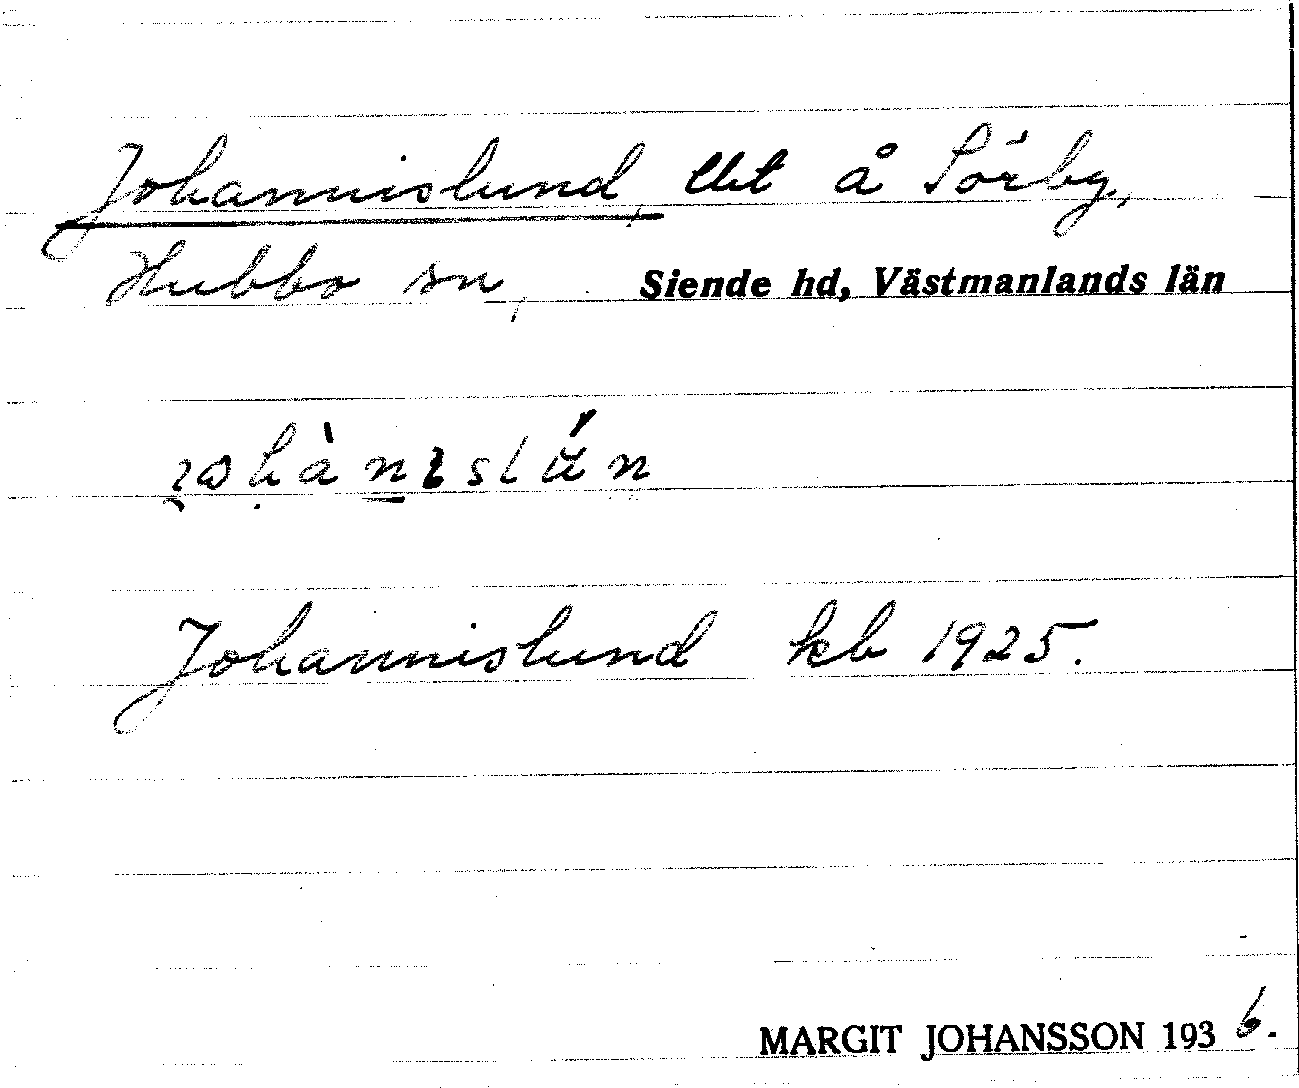 Johannislund, lht å Sörby,
Hubbo sn, Siende hd, Västmanlands län
Johannislund kb 1925.
MARGIT JOHANSSON 1936.